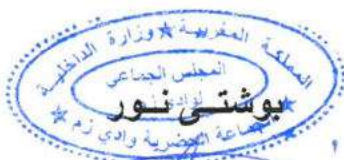 المملكة المغربية ★ وزارة الداخلية
المجلس الجماعي
لوادي زم
بوشتى نور
الجماعة الحضرية وادي زم